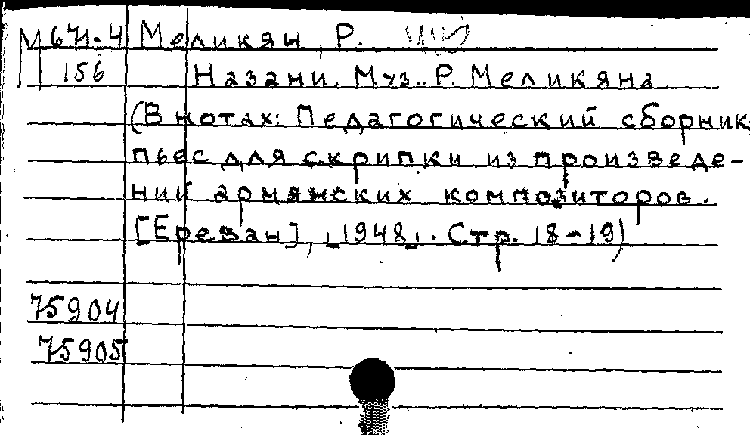 М64-4 Меликян, Р.
156 Назани. Муз. Р. Меликяна
(В нотах: Педагогический сборник
пьес для скрипки из произведе-
ний армянских композиторов.
[Ереван], 1948. Стр. 18-19)
75904
75905